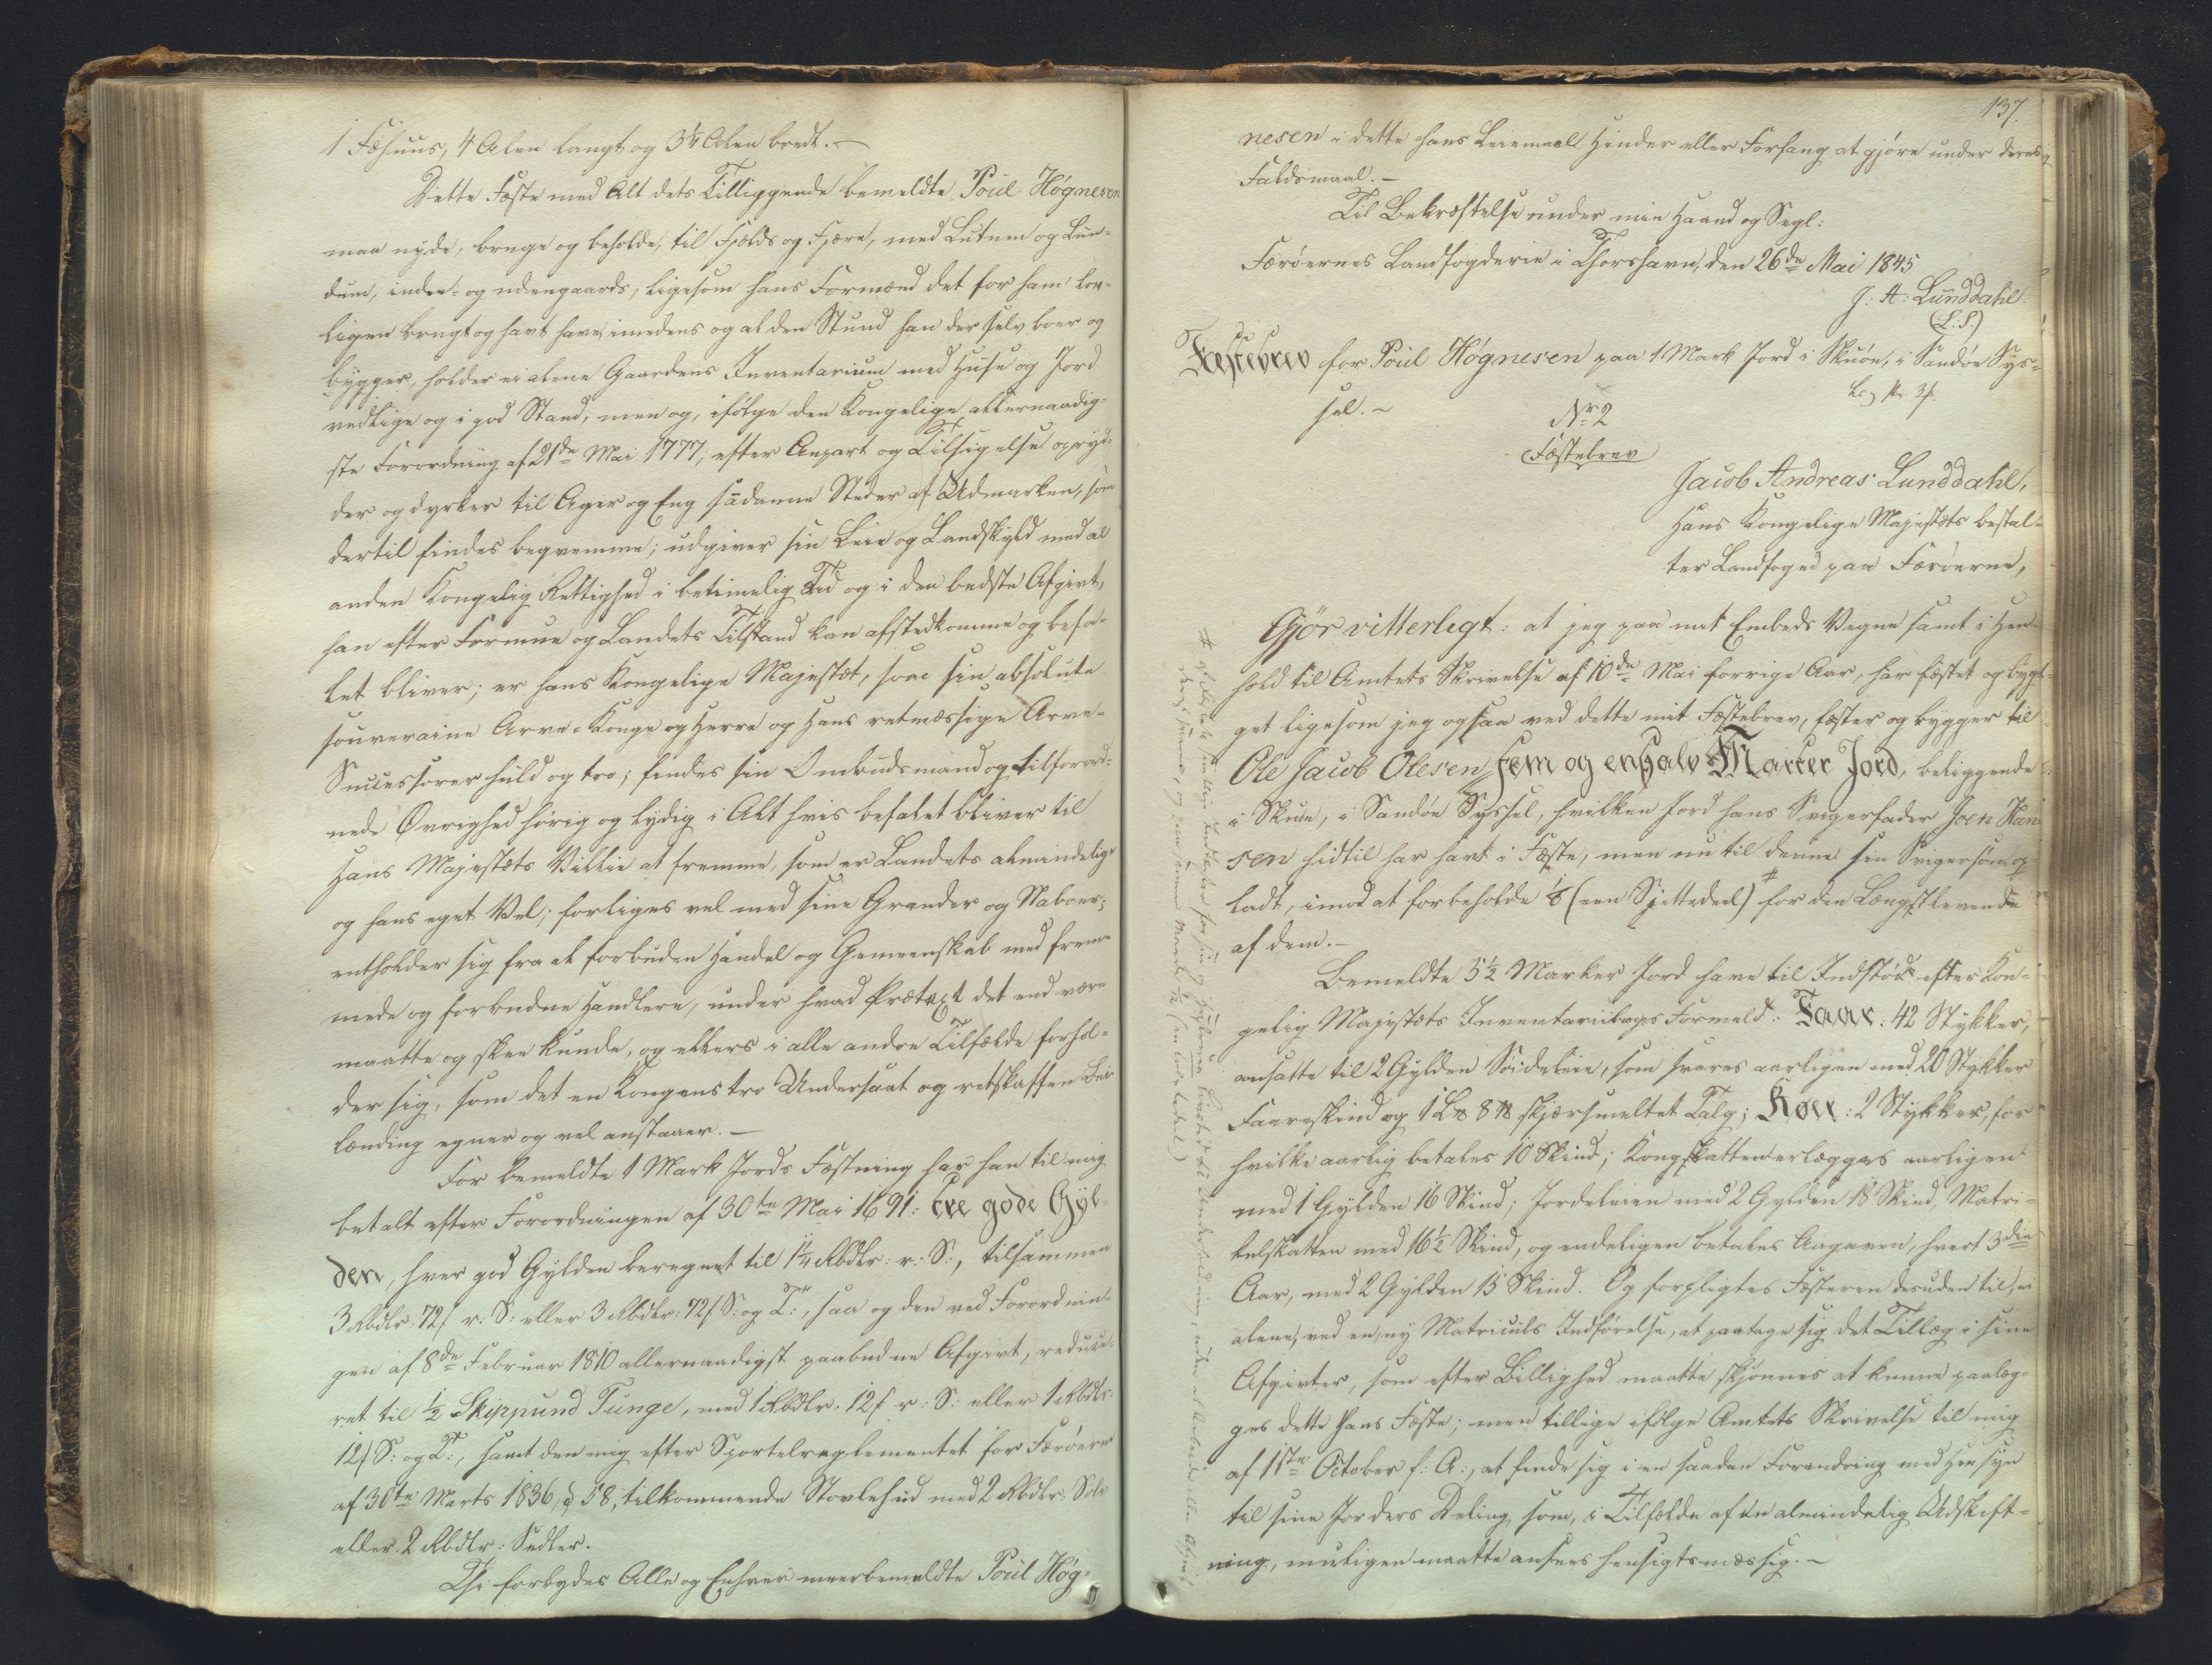 1 Fæhuus, 4 Alen langt og 3¼ Alen bredt. —
Dette Fæste med Alt dets Tilliggende bemeldte Poul Høgnesen
maa nyde, bruge og beholde, til Fjelds og Fjære, med Lutum og Lun-
dum, inden- og udengaards, ligesom hans Formænd det for ham lov-
ligen brugt og havt have, imedens og al den Stund han der selv boer og
bygger, holder ei alene Gaardens Inventarium med Huse og Jord
vedlige og i god Stand, men og, ifølge den Kongelige allernaadig-
ste Forordning af 21de Mai 1777, efter Anpart og Tilsigelse opryd-
der og dyrker til Ager og Eng sådanne Steder af Udmarken, som
dertil findes beqvemme; udgiver sin Leie og Landskyld med al
anden Kongelig Rettighed i betimelig Tid og i den bedste Afgivt,
han efter Formue og Landets Tilstand kan afstedkomme og befa-
let bliver; er hans Kongelige Majestæt, som sin absolute
souveraine Arve-Konge og Herre og Hans retmæssige Arve-
Successorer huld og tro; findes sin Ombudsmand og tilforord-
nede Øvrighed hørig og lydig i Alt hvis befalet bliver til
Hans Majestæts Villie at fremme, som er Landets almindelige
og hans eget Vel; forliges vel med sine Grander og Naboer;
entholder sig fra al forbuden Handel og Gemeenskab med frem-
mede og forbudne Handlere, under hvad Prætext det end være
maatte og skee kunde, og ellers i alle andre Tilfælde forhol-
der sig, som det en Kongens tro Undersaat og retskaffen Lei-
lænding egner og vel anstaaer. —
For bemeldte 1 Mark Jords Fæstning har han til mig
betalt efter Forordningen af 30te Mai 1691: tre gode Gyl-
den, hver god Gylden beregnet til 1¼ Rbdlr: r: S:, tilsammen
3 Rbdlr: 72 ß r: S: eller 3 Rbdlr: 72 ß S: og T:, saa og den ved Forordnin-
gen af 8de Februar 1810 allernaadigst paabudne Afgivt, reduce-
ret til ½ Skippund Tunge, med 1 Rbdlr. 12 ß r: S: eller 1 Rbdlr.
12 ß S: og T:, samt den mig efter Sportelreglementet for Færøerne
af 30te Marts 1836, § 58, tilkommende Stovlehud med 2 Rbdlr. Sølv
eller 2 Rbdlr: Sedler.
Thi forbydes Alle og Enhver meerbemeldte Poul Høg-
137.
nesen i dette hans Leiemaal Hinder eller Forfang at gjøre under deres
Faldsmaal. —
Til Bekræftelse under min Haand og Segl:
Færøernes Landfogderie i Thorshavn, den 26de Mai 1845
J: A: Lunddahl.
(L: S:)
Fæstebrev for Poul Høgnesen paa 1 Mark Jord i Skuøe, i Sandøe Sys-
sel. ~
Nr 2
Fæstebrev
Jacob Andreas Lunddahl,
Hans Kongelige Majestæts bestal-
ter Landfoged paa Færøerne,
Gjør vitterligt: at jeg paa mit Embeds Vegne samt i Hen-
hold til Amtets Skrivelse af 10de Mai forrige Aar, har fæstet og byg-
get ligesom jeg ogsaa ved dette mit Fæstebrev, fæster og bygger til
Ole Jacob Olesen fem og enhalv Marker Jord, beliggende
i Skuøe, i Sandøe Syssel, hvilken Jord hans Svigerfader Joen Han-
sen hidtil har havt i Fæste, men nu til denne sin Svigersøn op-
ladt, imod at forbeholde ⅙ (een Sjettedeel) # for den Længstlevende
af dem. —
Bemeldte 5½ Marker Jord have til Indstød efter Kon-
gelig Majestæts Inventariibogs Formeld: Faar: 42 Stykker,
ansatte til 2 Gylden Søideleie, som svares aarligen med 20 Stykker
Faareskind og 1 L℔ 8 ℔ skjærsmeltet Talg; Køer: 2 Stykker, for
hvilke aarlig betales 10 Skind; Kongskatten erlægges aarligen
med 1 Gylden 16 Skind; Jordeleien med 2 Gylden 18 Skind, Matri-
kelskatten med 16½ Skind, og endeligen betales Aagaven, hvert 3die
Aar, med 2 Gylden 15 Skind. Og forpligtes Fæsteren desuden til, ei
alene, ved en ny Matriculs Indførelse, at paatage sig det Tillæg i sine
Afgivter, som efter Billighed maatte skjønnes at kunne paalæg-
ges dette hans Fæste; men tillige ifølge Amtets Skrivelse til mig
af 11te October f: A:, at finde sig i en saadan Forandring med Hensyn
til sine Jorders Deling, som, i Tilfælde af en almindelig Udskift-
ning, muligen maatte ansees hensigtsmæssig. ~